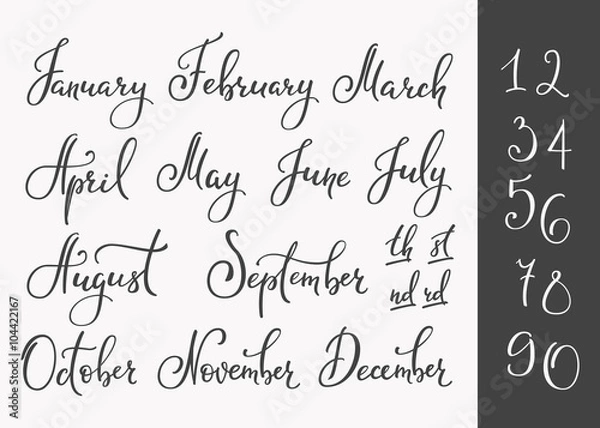 January February March
April May June July
August September th st
nd rd
October November December
1 2
3 4
5 6
7 8
9 0
Adobe Stock | #104422167